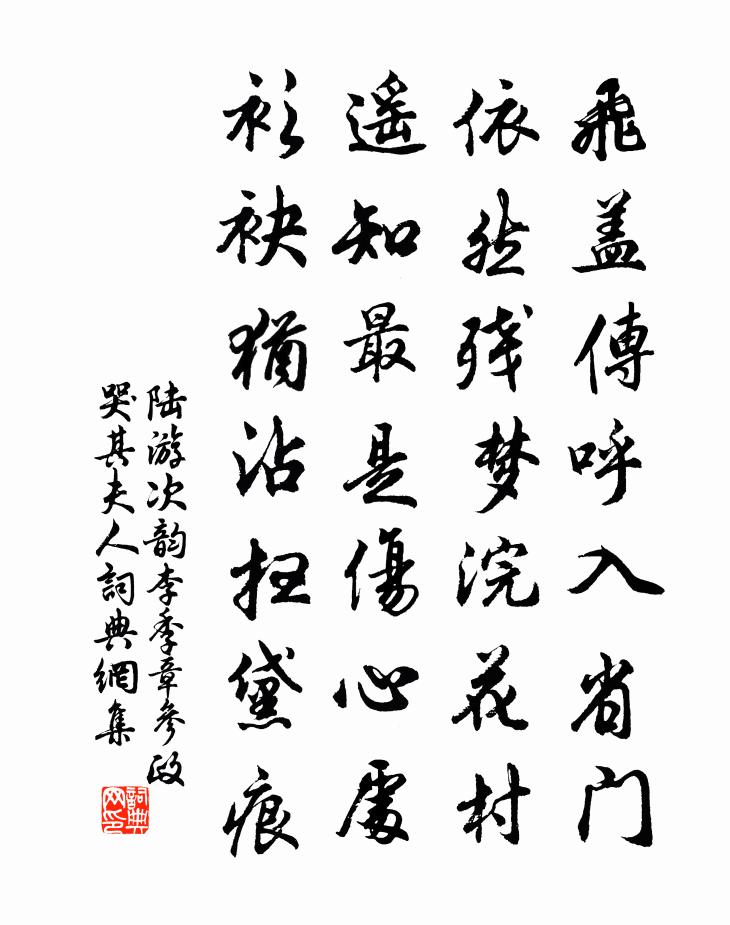 飛蓋傳呼入省门
依然残梦浣花村
遥知最是傷心處
衫袂猶沾扫黛痕
陆游次韵李季章參政
哭其夫人詞典網集
詞典网印